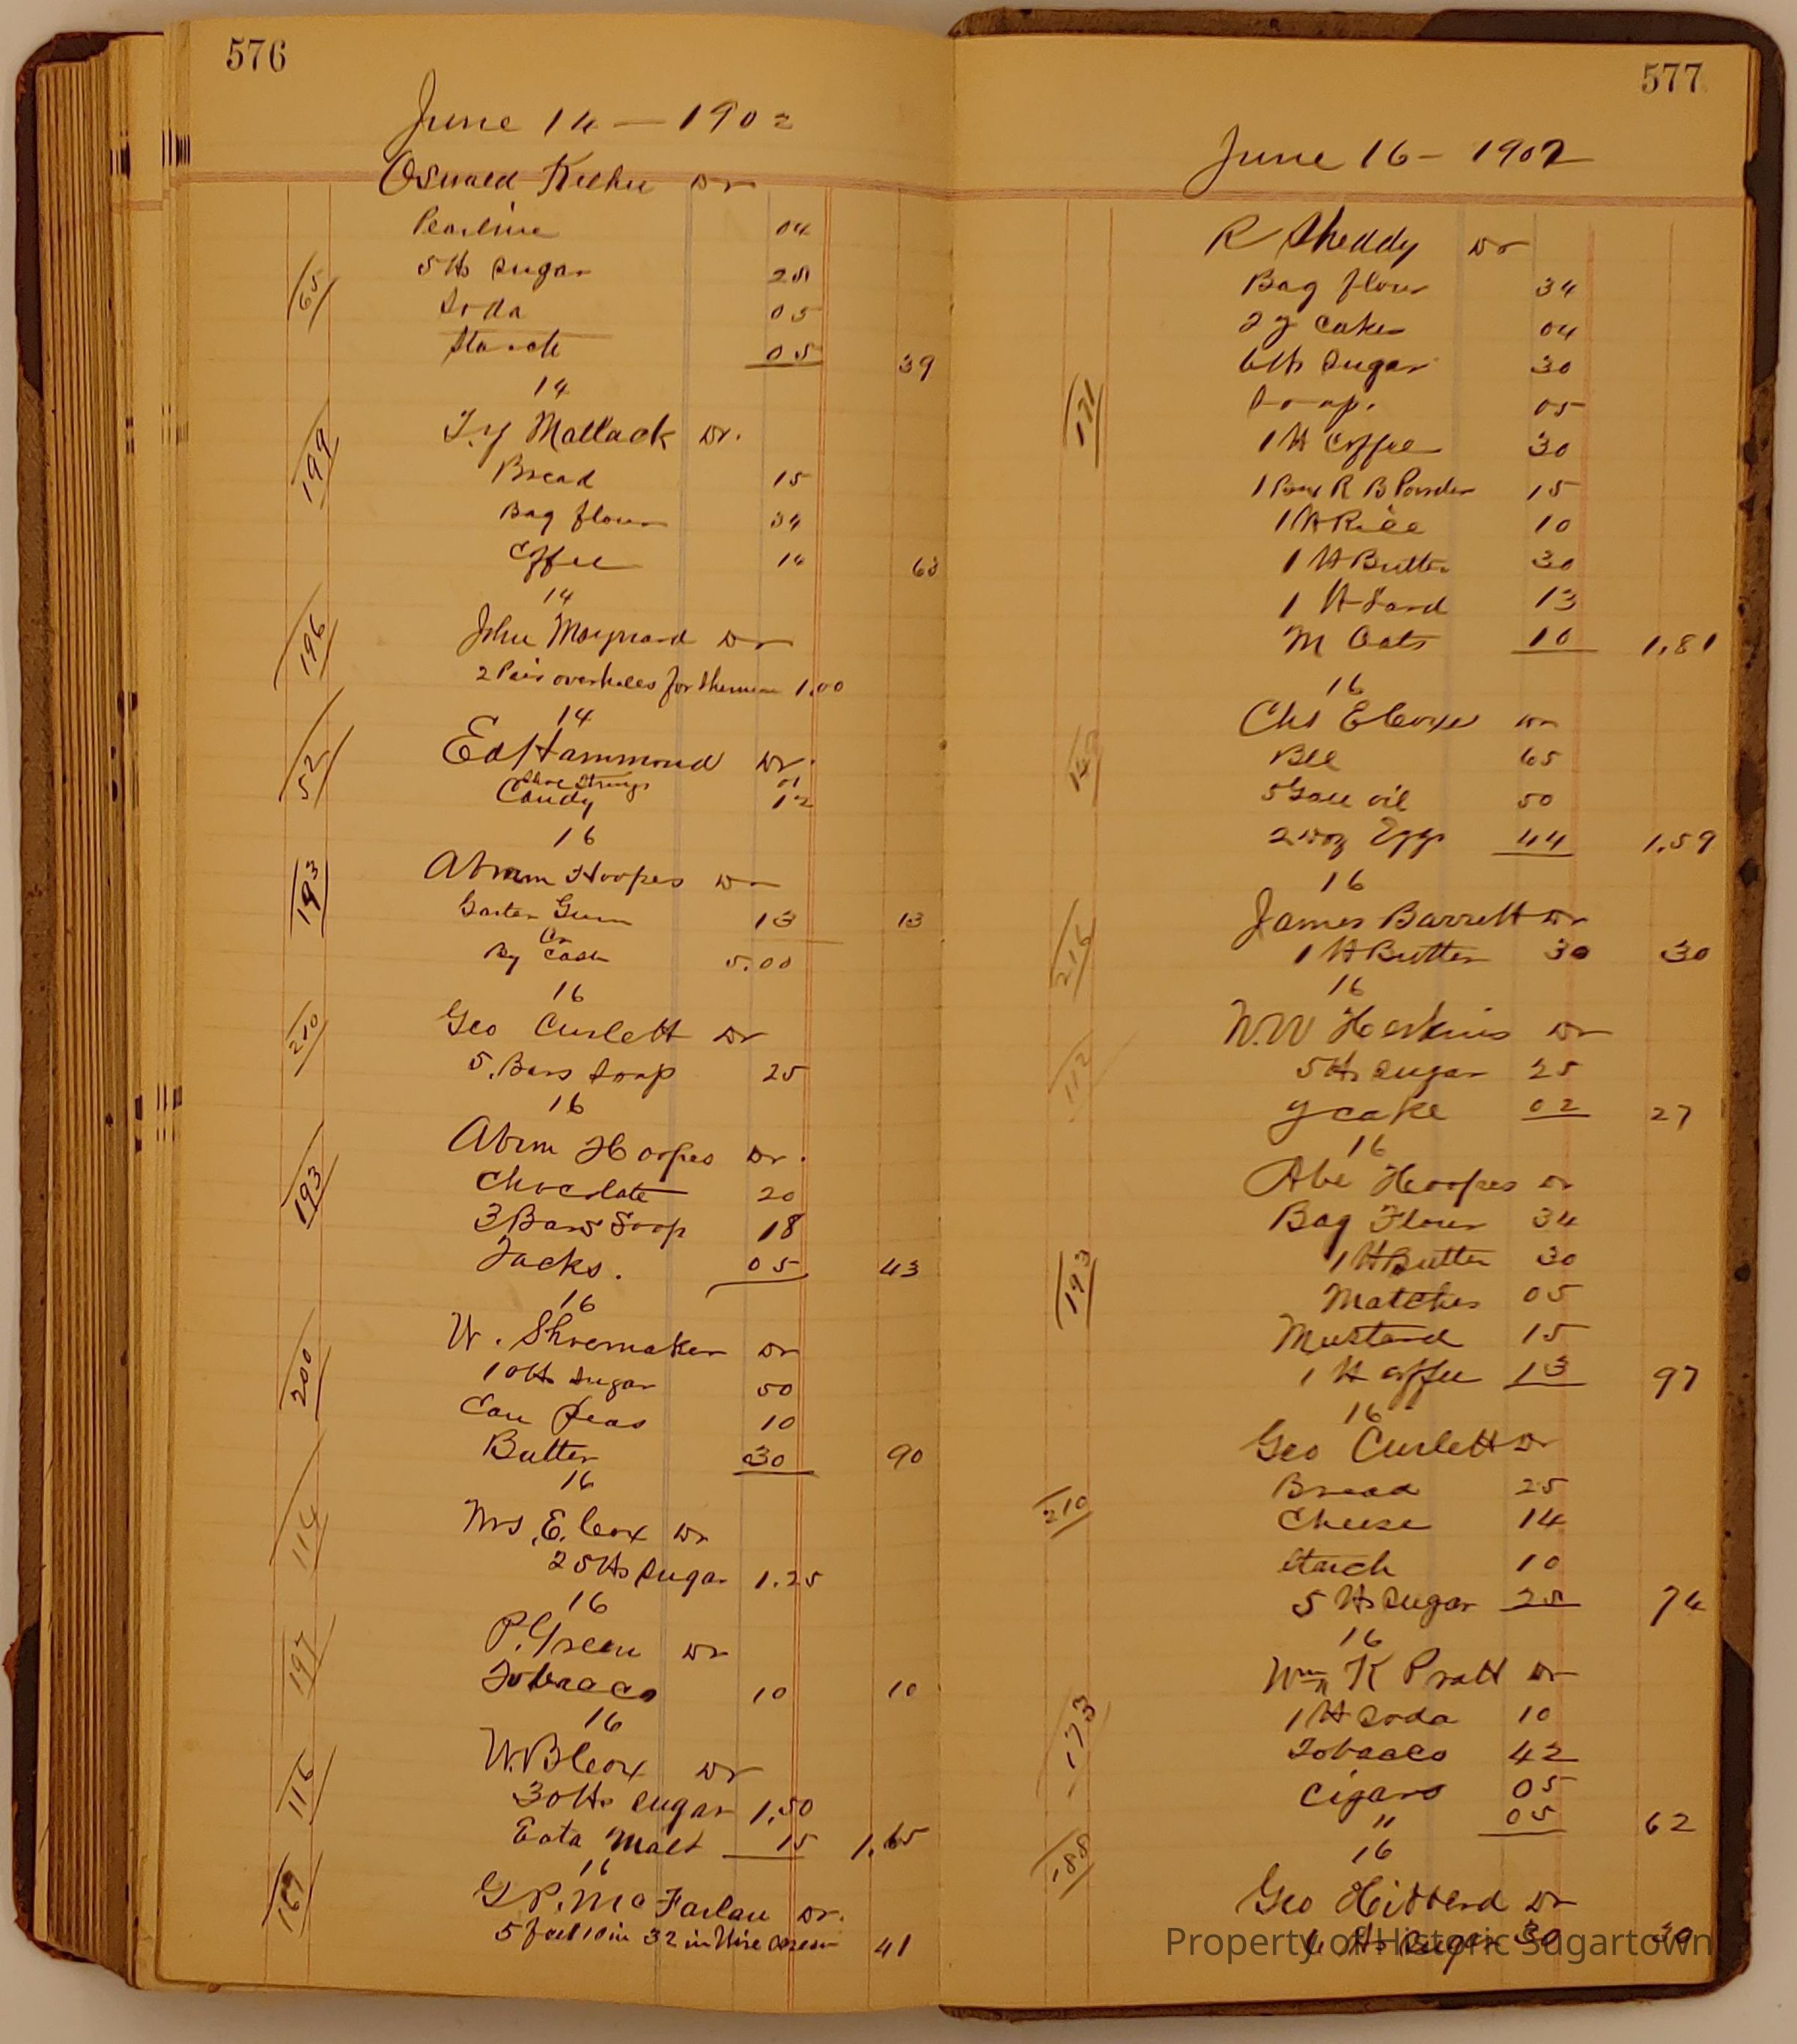 576
June 14 — 1902
Oswald Dr
Pearline 04
65
5 lbs Sugar 25
Soda 05
Starch 05 39
14
199
T. Y Matlack Dr.
Bread 15
Bag flour 34
Coffee 14 63
14
196
John Maynard Dr
2 Pair overhalls for 1.00
14
52
Ed Hammond Dr.
Shoe Strings 01
Candy 12
16
193
Abram Hoopes Dr
Garter Gum 13 13
Cr
By Cash 5.00
16
210
Geo Curlett Dr
5. Bars Soap 25
16
193
Abrm Hoopes Dr.
Chocolate 20
3 Bars Soap 18
Tacks. 05 43
16
200
W. Shoemaker Dr
10 lbs Sugar 50
Can Peas 10
Butter 30 90
16
114
Mrs. E. Cox Dr
25 lbs Sugar 1.25
16
197
P. Green Dr
Tobacco 10 10
16
116
W. B Cox Dr
30 lbs Sugar 1.50
Malt 15 1.65
16
169
G P. McFarlan Dr.
5 feet 10 in 32 in Wire Screen 41
577
June 16 - 1902
R Sheddy Dr
Bag flour 34
2 y Cakes 04
6 lbs Sugar 30
171
Soap. 05
1 lb Coffee 30
1 Box R B Powder 15
1 lb Rice 10
1 lb Butter 30
1 lb Lard 13
M Oats 10 1.81
16
Chs E Dr
65
5 Gall oil 50
2 Doz Eggs 44 1.59
16
216
James Barrett Dr
1 lb Butter 30 30
16
112
W. W Hoskins Dr
5 lbs Sugar 25
y cake 02 27
16
Abe Hoopes Dr
Bag Flour 34
193
1 lb Butter 30
Matches 05
Mustard 15
1 lb Coffee 13 97
16
Geo Curlett Dr
210
Bread 25
Cheese 14
Starch 10
5 lbs Sugar 25 74
16
Wm K Pratt Dr
173
1 lb Soda 10
Tobacco 42
Cigars 05
" 05 62
16
188
Geo Hibberd Dr
6 lbs Sugar 30 30
Property of Historic Sugartown